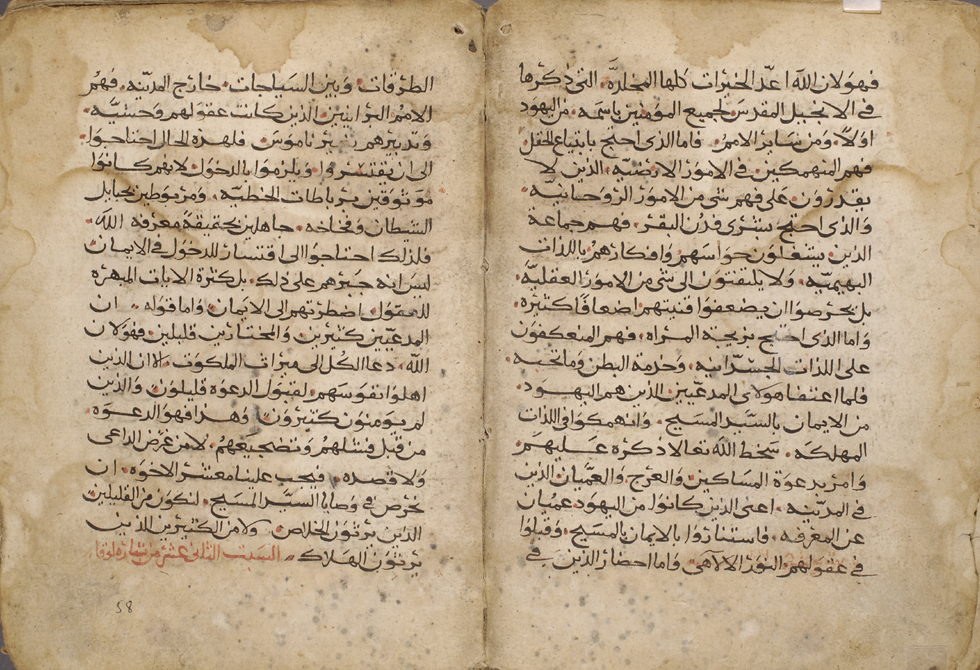 فهو لان الله اعد الخيرات كلها المخلده. التى ذكرها
فى الانجيل المقدس لجميع المؤمنين باسمه. من اليهود
اولاً. ومن ساير الامم. فاما الذى احتج بابتياع الحقل
فهم المنهمكين فى الامور الارضيه. الذين لا
يقدرون على فهم شى من الامور الروحانيه.
والذى احتج بشرى فدن البقر. فهم جماعة
الذين يشغلون حواسهم وافكارهم باللذات
البهيميه. ولا يلتفتون الى شى من الامور العقليه.
بل يحرصوا ان يضعفوا قنيتهم اضعافاً كثيره
واما الذى احتج بزيجة المراه. فهم المنعكفون
على اللذات الجسدانيه. وخدمة البطن وما تحته
فلما اعتفا هولاى المدعيين الذين هم اليهود.
من الايمان بالسيد المسيح. وانهمكوا فى اللذات
المهلكه. سخط الله تعالا ذكره عليهم.
وامر بدعوة المساكين والعرج والعميان الذين
فى المدينه. اعنى الذين كانوا من اليهود عميان
عن المعرفه. فاستناروا بالايمان بالمسيح. وقبلوا
فى عقولهم النور الالاهى. واما احضار الذين فى
الطرقات. وبين السياجات. خارج المدينه. فهم
الامم البرانيين الذين كانت عقولهم وحشيه.
وتدبيرهم بغير ناموس. فلهذه الحال احتاجوا
الى ان يقتسروا ويلزموا بالدخول لانهم كانوا
موثوقين برباطات الخطيه. ومربوطين بحبايل
الشيطان وفخاخه. جاهلين بحقيقة معرفة الله
فلذلك احتاجوا الى اقتسار للدخول فى الايمان
ليس انه جبرهم على ذلك. بل كثرة الايات المبهره
للعقول اضطرتهم الى الايمان. واما قوله. ان
المدعيين كثيرين والمختارين قليلين. فهو لان
الله. دعا الكل الى ميراث الملكوت. الا ان الذين
اهلوا نفوسهم لقبول الدعوه قليلون. والذين
لم يومنون كثيرون. وهذا فهو الدعوه
من قبل فشلهم وتضجيعهم. لا من غرض الداعى
ولا قصده. فيجب علينا معشر الاخوه. ان
نحرص فى وصايا السيد المسيح. لنكون من القليلين
الذين يرثون الخلاص. ولا من الكثيرين الذين
يرثون الهلاك. السبت الثانى عشر من بشارة لوقا
58